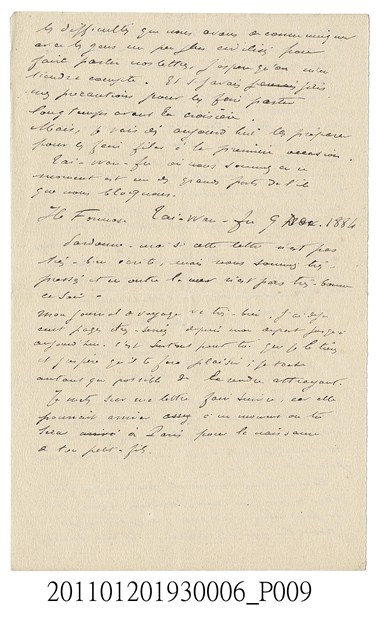 les difficultés que nous avons à communiquer
avec les gens un peu plus civilisés pour
faire partir nos lettres, j'espère qu'on m'en
tiendra compte. Et si j'avais pris
mes précautions pour les faire partir
longtemps avant la croisière.
Mais, je vais dès aujourd'hui les préparer
pour les faire filer à la première occasion.
Tai-Wan-fu où nous sommes en ce
moment est un des grands ports de l'île
que nous bloquons.
Ile Formose Tai-Wan-fu 9 1884
Pardonne-moi si cette lettre n'est pas
très-bien écrite, mais nous sommes très-
pressés et en outre la mer n'est pas très-bonne
ce soir.
Mon journal de voyage va très-bien, j'ai déjà
cent pages très-serrées depuis mon départ jusqu'à
aujourd'hui. C'est surtout pour toi que je le tiens
et j'espère qu'il te fera plaisir; je tâche
autant que possible de le rendre attrayant.
Je mets sur ma lettre faire suivre, car elle
pourrait arriver assez à un moment où tu
seras à Paris pour la naissance
de ton petit-fils.
201101201930006_P009